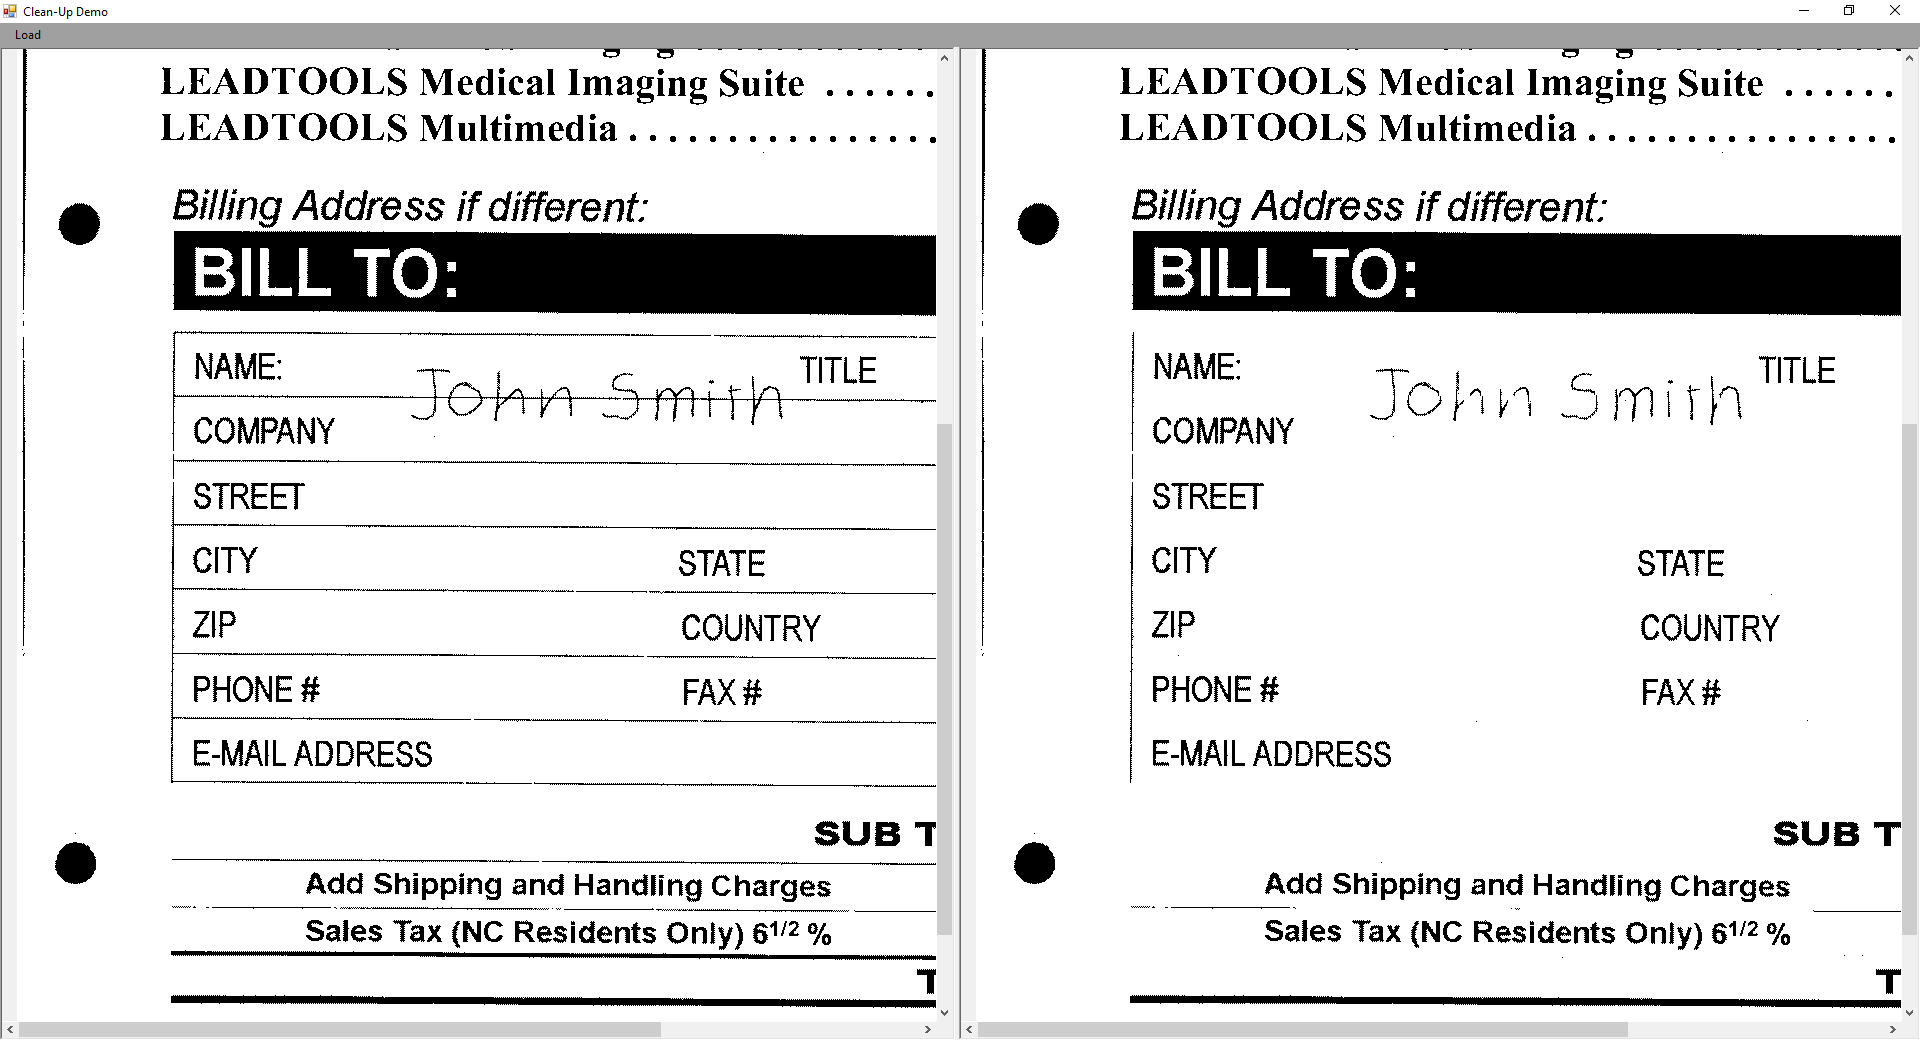 Clean-Up Demo
Load
LEADTOOLS Medical Imaging Suite ......
LEADTOOLS Multimedia ................
Billing Address if different:
BILL TO:
NAME: John Smith TITLE
COMPANY
STREET
CITY STATE
ZIP COUNTRY
PHONE # FAX #
E-MAIL ADDRESS
SUB T
Add Shipping and Handling Charges
Sales Tax (NC Residents Only) 6 1/2 %
T
LEADTOOLS Medical Imaging Suite ......
LEADTOOLS Multimedia ................
Billing Address if different:
BILL TO:
NAME: John Smith TITLE
COMPANY
STREET
CITY STATE
ZIP COUNTRY
PHONE # FAX #
E-MAIL ADDRESS
SUB T
Add Shipping and Handling Charges
Sales Tax (NC Residents Only) 6 1/2 %
T